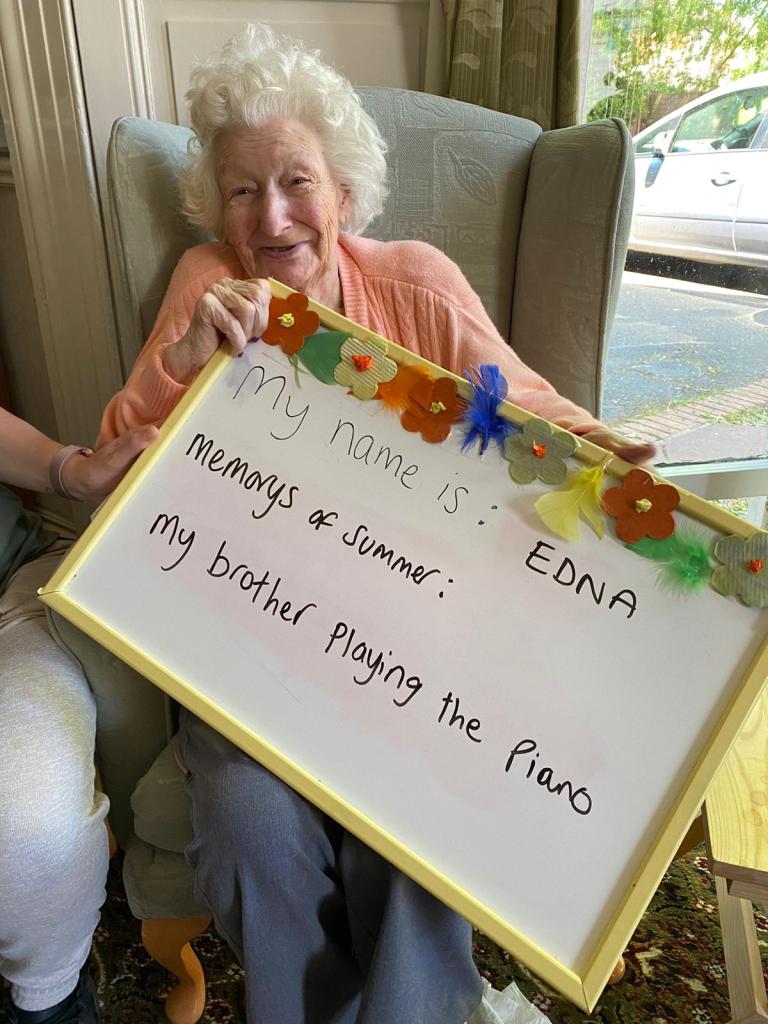 My name is: EDNA
Memorys of summer:
My brother Playing the Piano